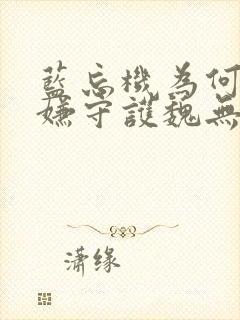 藍忘機為何
嫌守護魏無
潇缘